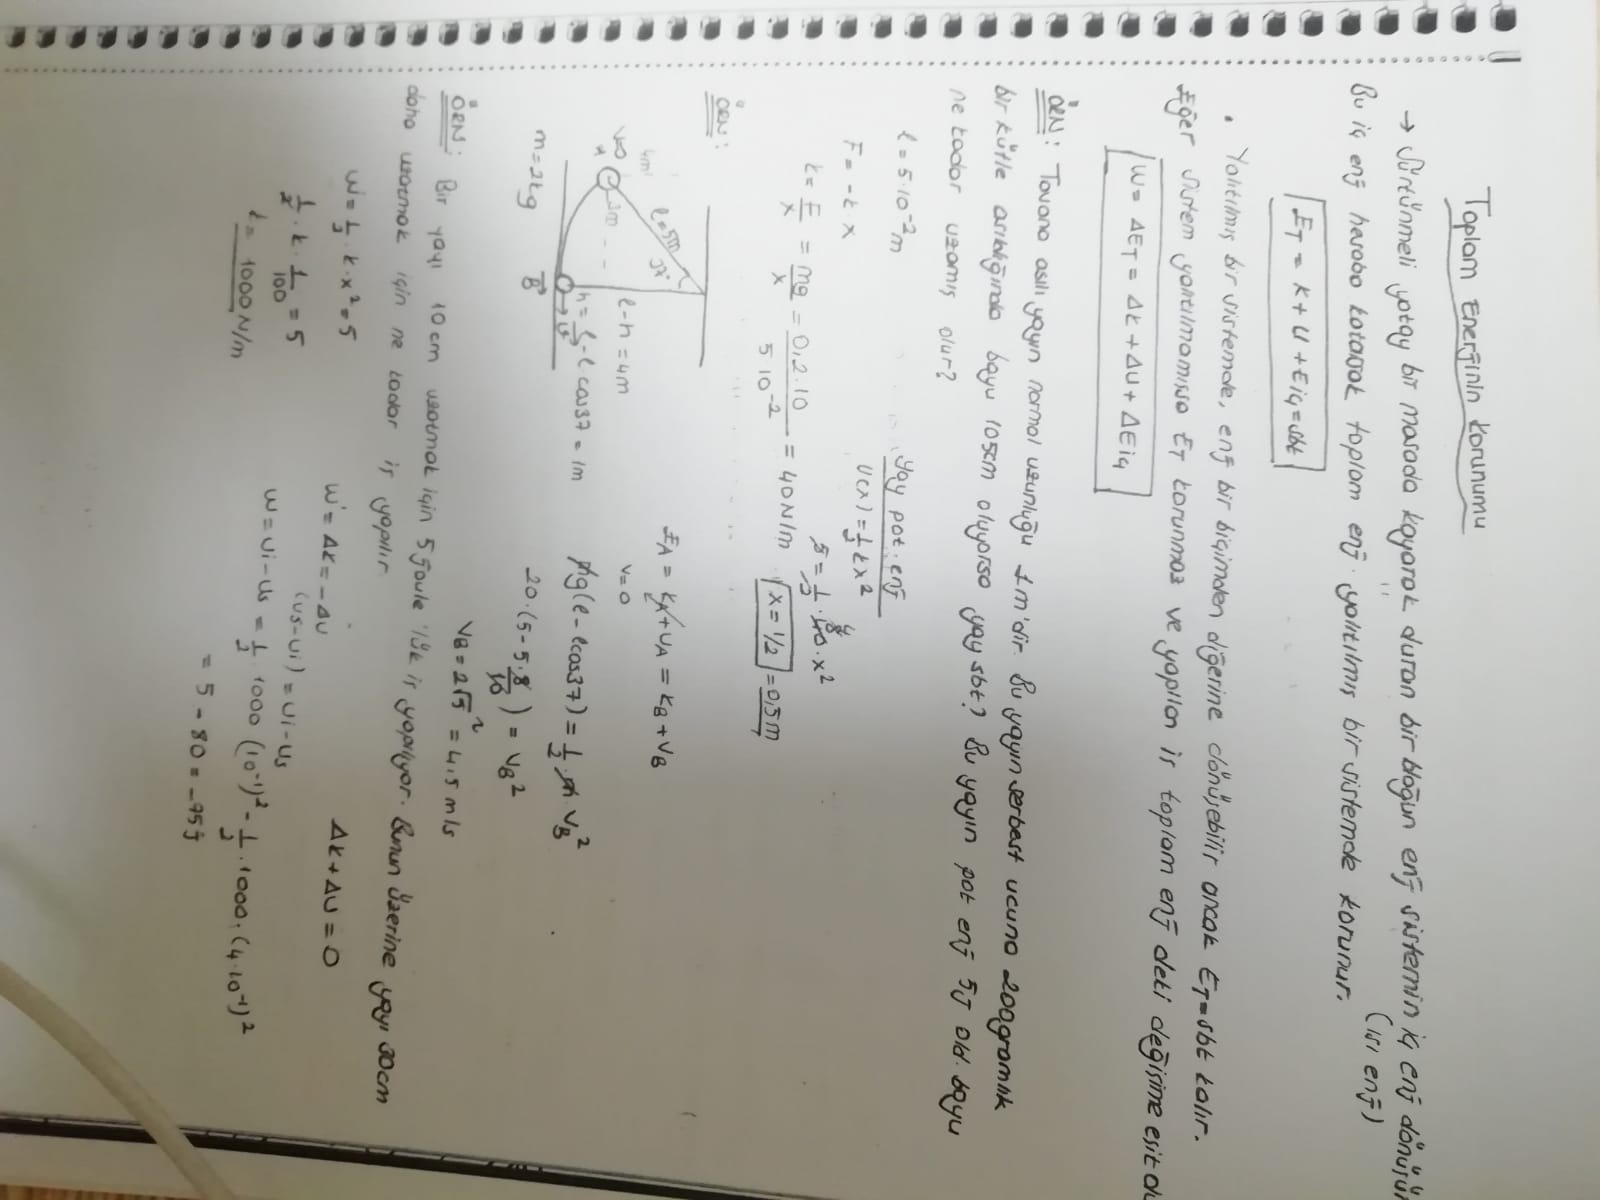 Toplam Enerjinin Korunumu
→ Sürtünmeli yatay bir masada kayarak duran bir bloğun enj sistemin iç enj dönüşür
(ısı enj)
Bu iç enj hesaba katarsak toplam enj. yalıtılmış bir sistemde korunur.
E_T = K + U + Eiç = sbt
• Yalıtılmış bir sistemde, enj bir biçimden diğerine dönüşebilir ancak E_T = sbt kalır.
Eğer sistem yalıtılmamışsa E_T korunmaz ve yapılan iş toplam enj deki değişime eşit
W = ΔE_T = Δk + ΔU + ΔEiç
ÖRN: Tavana asılı yayın normal uzunluğu 1m'dir. Bu yayın serbest ucuna 200gramlık
bir kütle asıldığında boyu 105cm oluyorsa yay sbt? Bu yayın pot enj 5J old. boyu
ne kadar uzamış olur?
l = 5·10⁻²m
F = -k·x
k = F/x = mg/x = 0,2·10 / 5·10⁻² = 40 N/m
Yay pot. enj
U(x) = 1/2 kx²
5 = 1/2 · 40 · x²
x = 1/2 = 0,5m
ÖRN:
l = 5m
37°
4m
V=0
A
3m
l-h = 4m
h = l - l·cos37 = 1m
v
m = 2kg
B
E_A = K_A + U_A = K_B + V_B
v = 0
mg(l - lcos37) = 1/2 · m V_B²
20·(5 - 5·8/10) = V_B²
V_B = 2√5 ≈ 4,5 m/s
ÖRN: Bir yayı 10cm uzatmak için 5 joule'lük iş yapılıyor. Bunun üzerine yayı 30cm
daha uzatmak için ne kadar iş yapılır
W = 1/2 · k · x² = 5
1/2 · k · 1/100 = 5
k = 1000 N/m
W = Δk = -ΔU
ΔK + ΔU = 0
(Us - Ui) = Ui - Us
W = Ui - Us = 1/2 · 1000 (10⁻¹)² - 1/2 · 1000 · (4·10⁻¹)²
= 5 - 80 = -75 j